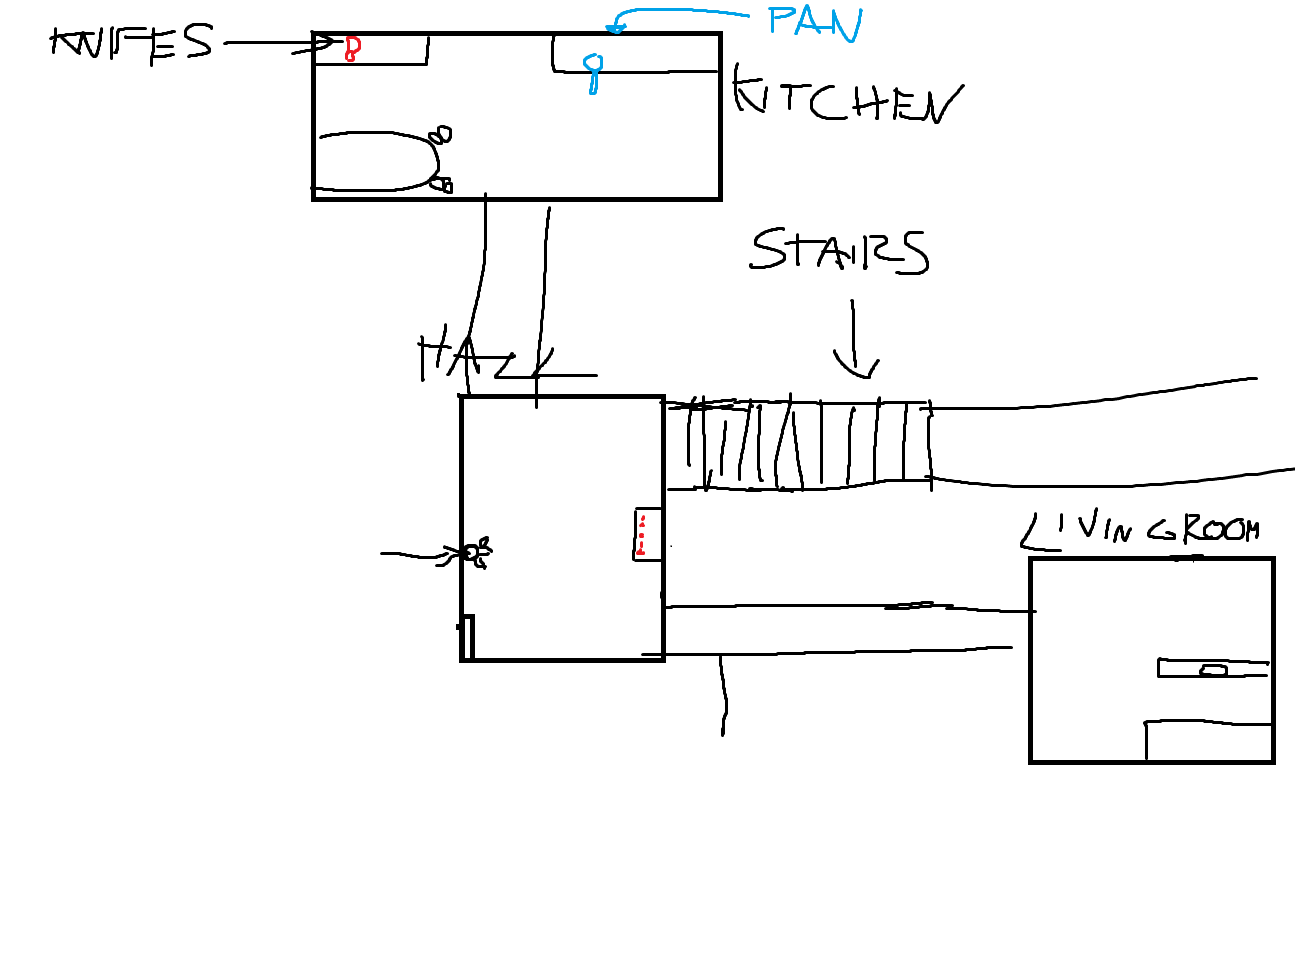 KNIFES
PAN
KITCHEN
STAIRS
HALL
LIVING ROOM